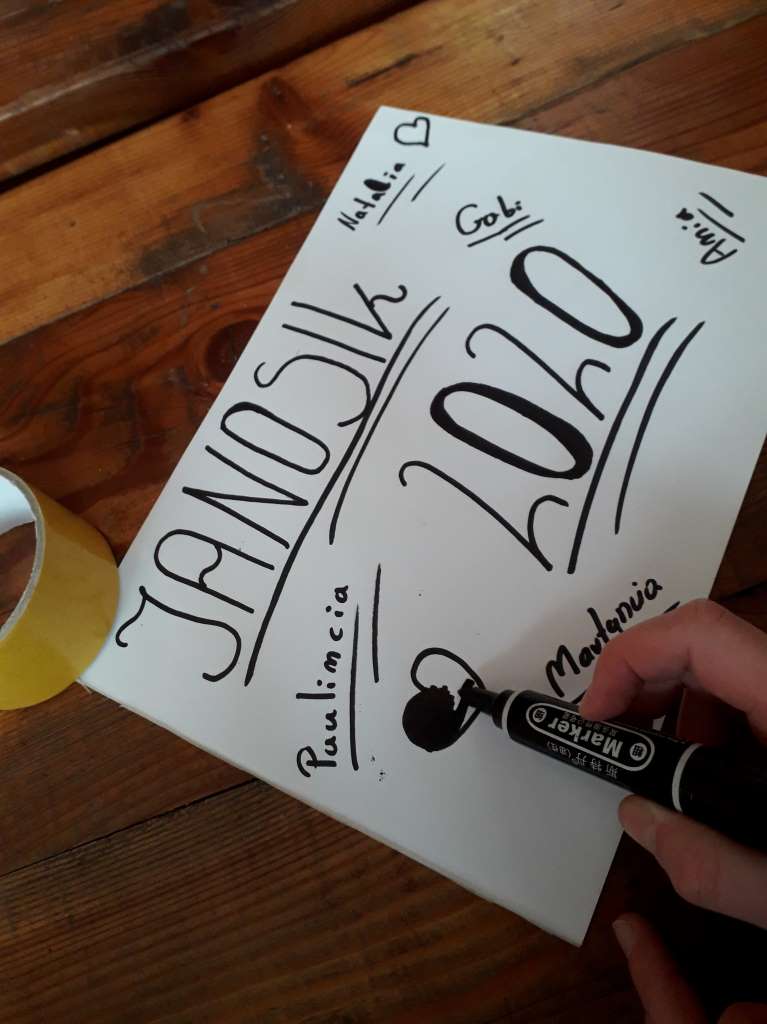 Natalia
Gabi
Ania
JANOSIK
2020
Paulincia
Martynia
Marker